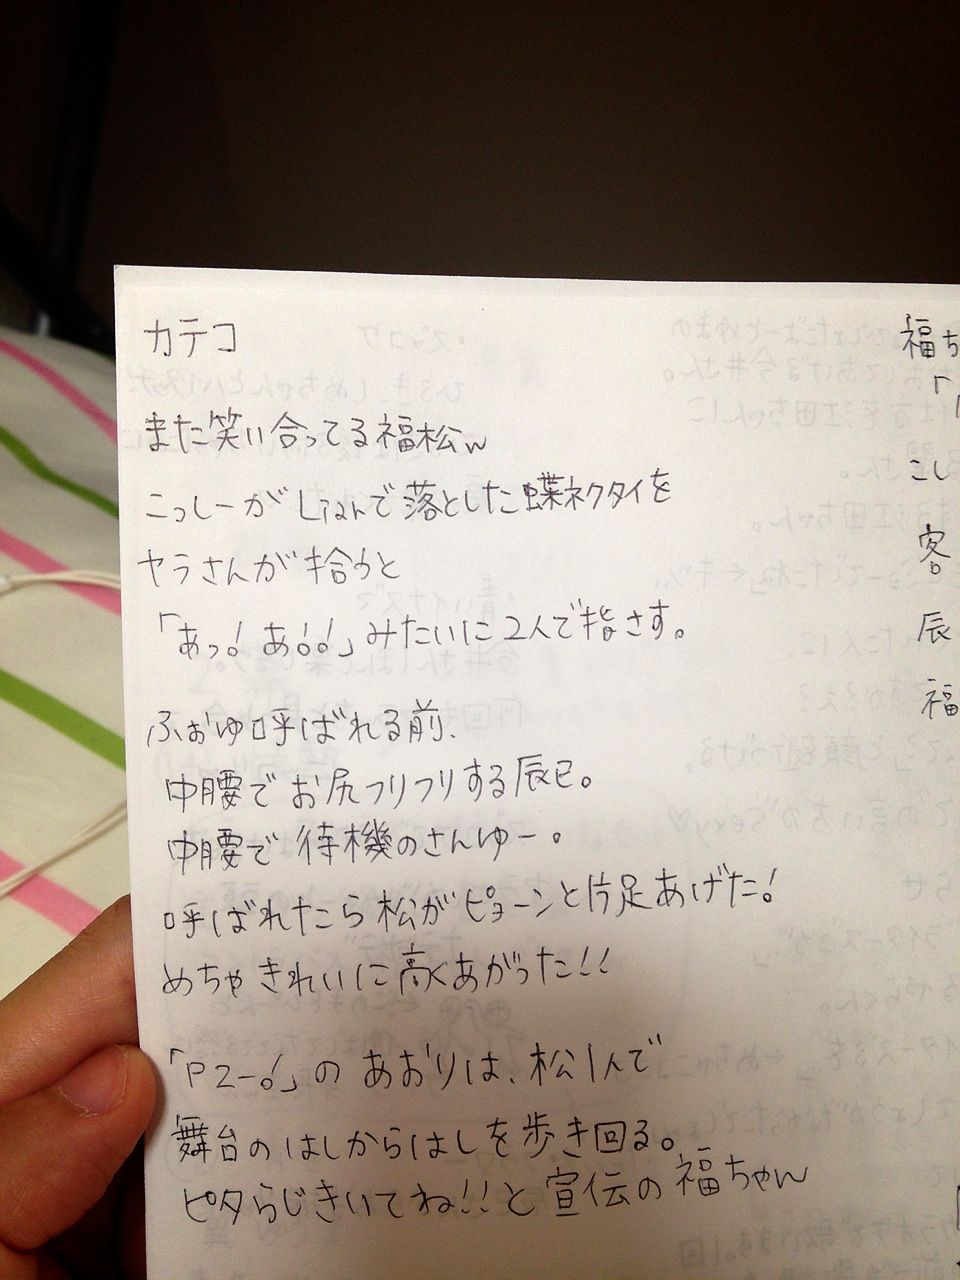 カテコ
また笑い合ってる福松w
こっしーがLianで落とした蝶ネクタイを
ヤラさんが拾うと
「あっ!あ!!」みたいに2人で指さす。
ふぉゆ呼ばれる前、
中腰でお尻フリフリする辰巳。
中腰で待機のさんゆー。
呼ばれたら松がピョーンと片足あげた!
めちゃきれいに高くあがった!!
「P2-!」のあおりは、松1人で
舞台のはしからはしを歩き回る。
ピタらじきいてね!!と宣伝の福ちゃん
福ち
「
こし
客
辰
福